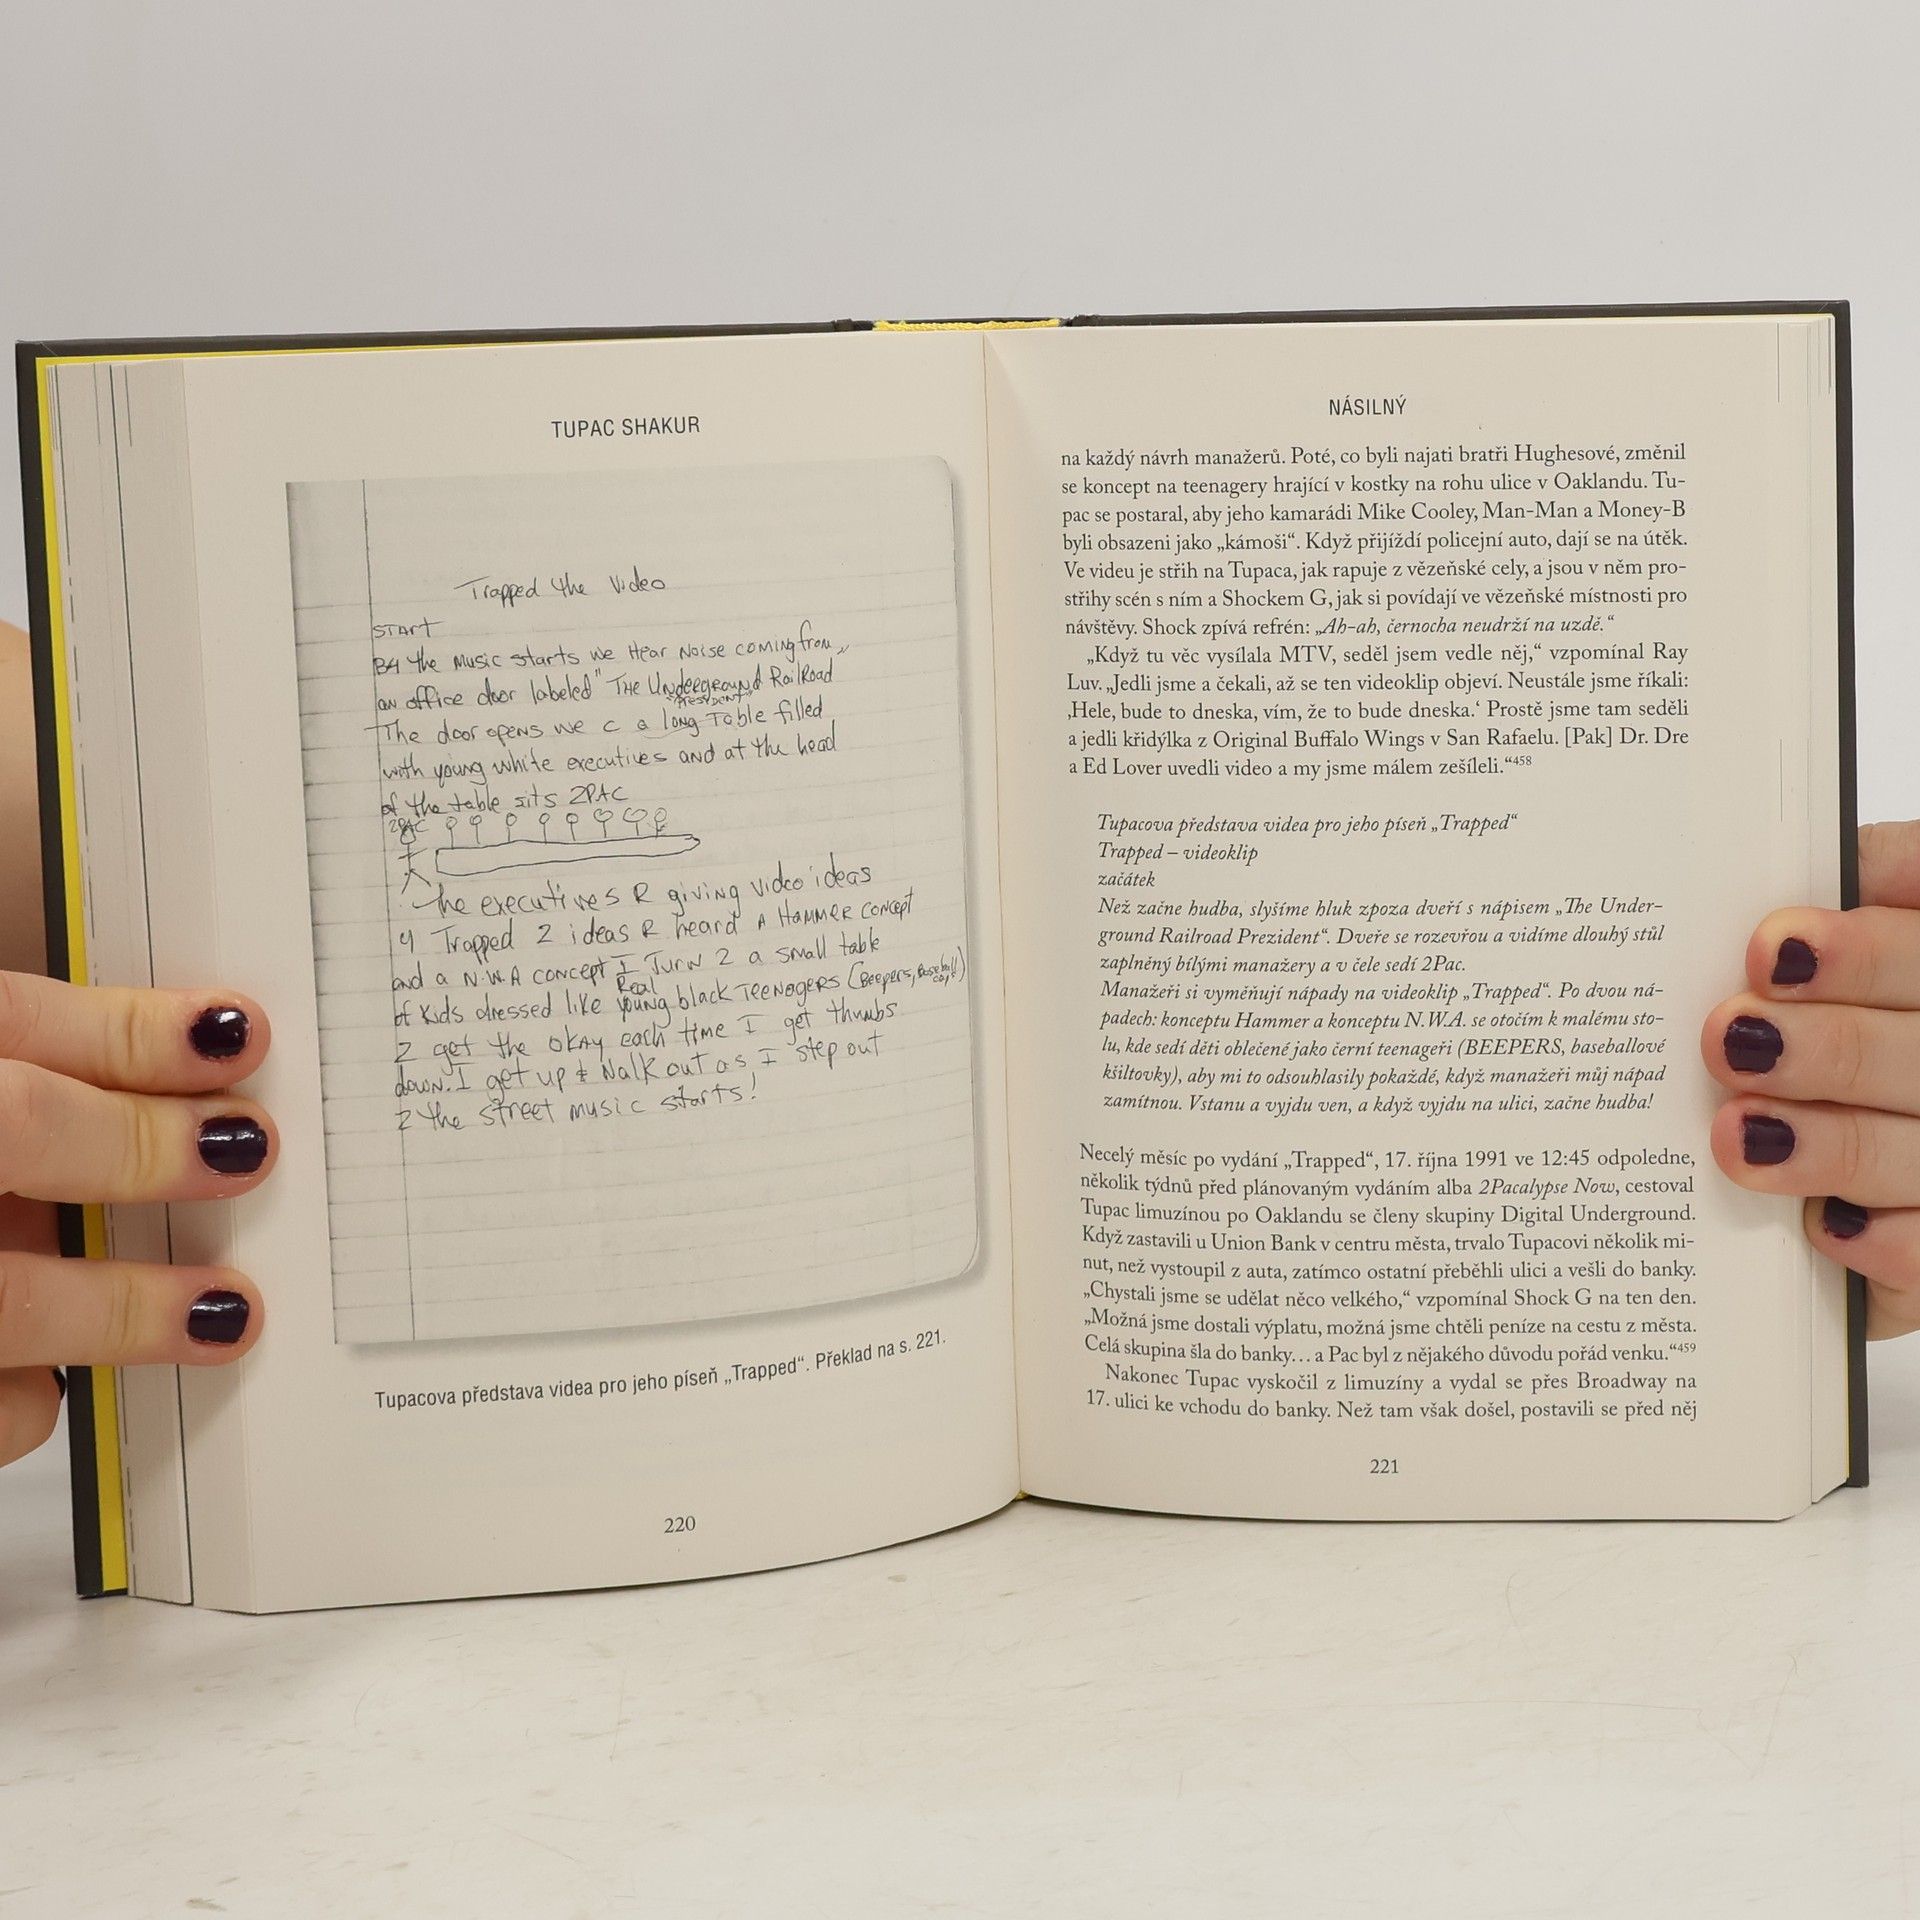 TUPAC SHAKUR
Trapped the Video
START
B4 the music starts we Hear Noise coming from
an office door labeled "THE UNDERGROUND RailRoad
"PRESIDENT"
The door opens we c a long Table filled
with young white executives and at the head
of the table sits 2PAC
2PAC
The executives R giving video ideas
4 Trapped 2 ideas R heard A HAMMER concept
and a N.W.A concept I Turn 2 a small table
of Kids dressed like Real young black TEENAGERS (BEEPERS, Baseball caps)
2 get the okay each time I get thumbs
down. I get up & Walk out as I step out
2 the street music starts!
Tupacova představa videa pro jeho píseň „Trapped“. Překlad na s. 221.
220
NÁSILNÝ
na každý návrh manažerů. Poté, co byli najati bratři Hughesové, změnil
se koncept na teenagery hrající v kostky na rohu ulice v Oaklandu. Tu-
pac se postaral, aby jeho kamarádi Mike Cooley, Man-Man a Money-B
byli obsazeni jako „kámoši“. Když přijíždí policejní auto, dají se na útěk.
Ve videu je střih na Tupaca, jak rapuje z vězeňské cely, a jsou v něm pro-
střihy scén s ním a Shockem G, jak si povídají ve vězeňské místnosti pro
návštěvy. Shock zpívá refrén: „Ah-ah, černocha neudrží na uzdě.“
„Když tu věc vysílala MTV, seděl jsem vedle něj,“ vzpomínal Ray
Luv. „Jedli jsme a čekali, až se ten videoklip objeví. Neustále jsme říkali:
‚Hele, bude to dneska, vím, že to bude dneska.‘ Prostě jsme tam seděli
a jedli křidýlka z Original Buffalo Wings v San Rafaelu. [Pak] Dr. Dre
a Ed Lover uvedli video a my jsme málem zešíleli.“458
Tupacova představa videa pro jeho píseň „Trapped“
Trapped – videoklip
začátek
Než začne hudba, slyšíme hluk zpoza dveří s nápisem „The Under-
ground Railroad Prezident“. Dveře se rozevřou a vidíme dlouhý stůl
zaplněný bílými manažery a v čele sedí 2Pac.
Manažeři si vyměňují nápady na videoklip „Trapped“. Po dvou ná-
padech: konceptu Hammer a konceptu N.W.A. se otočím k malému sto-
lu, kde sedí děti oblečené jako černí teenageři (BEEPERS, baseballové
kšiltovky), aby mi to odsouhlasily pokaždé, když manažeři můj nápad
zamítnou. Vstanu a vyjdu ven, a když vyjdu na ulici, začne hudba!
Necelý měsíc po vydání „Trapped“, 17. října 1991 ve 12:45 odpoledne,
několik týdnů před plánovaným vydáním alba 2Pacalypse Now, cestoval
Tupac limuzínou po Oaklandu se členy skupiny Digital Underground.
Když zastavili u Union Bank v centru města, trvalo Tupacovi několik mi-
nut, než vystoupil z auta, zatímco ostatní přeběhli ulici a vešli do banky.
„Chystali jsme se udělat něco velkého,“ vzpomínal Shock G na ten den.
„Možná jsme dostali výplatu, možná jsme chtěli peníze na cestu z města.
Celá skupina šla do banky… a Pac byl z nějakého důvodu pořád venku.“459
Nakonec Tupac vyskočil z limuzíny a vydal se přes Broadway na
17. ulici ke vchodu do banky. Než tam však došel, postavili se před něj
221